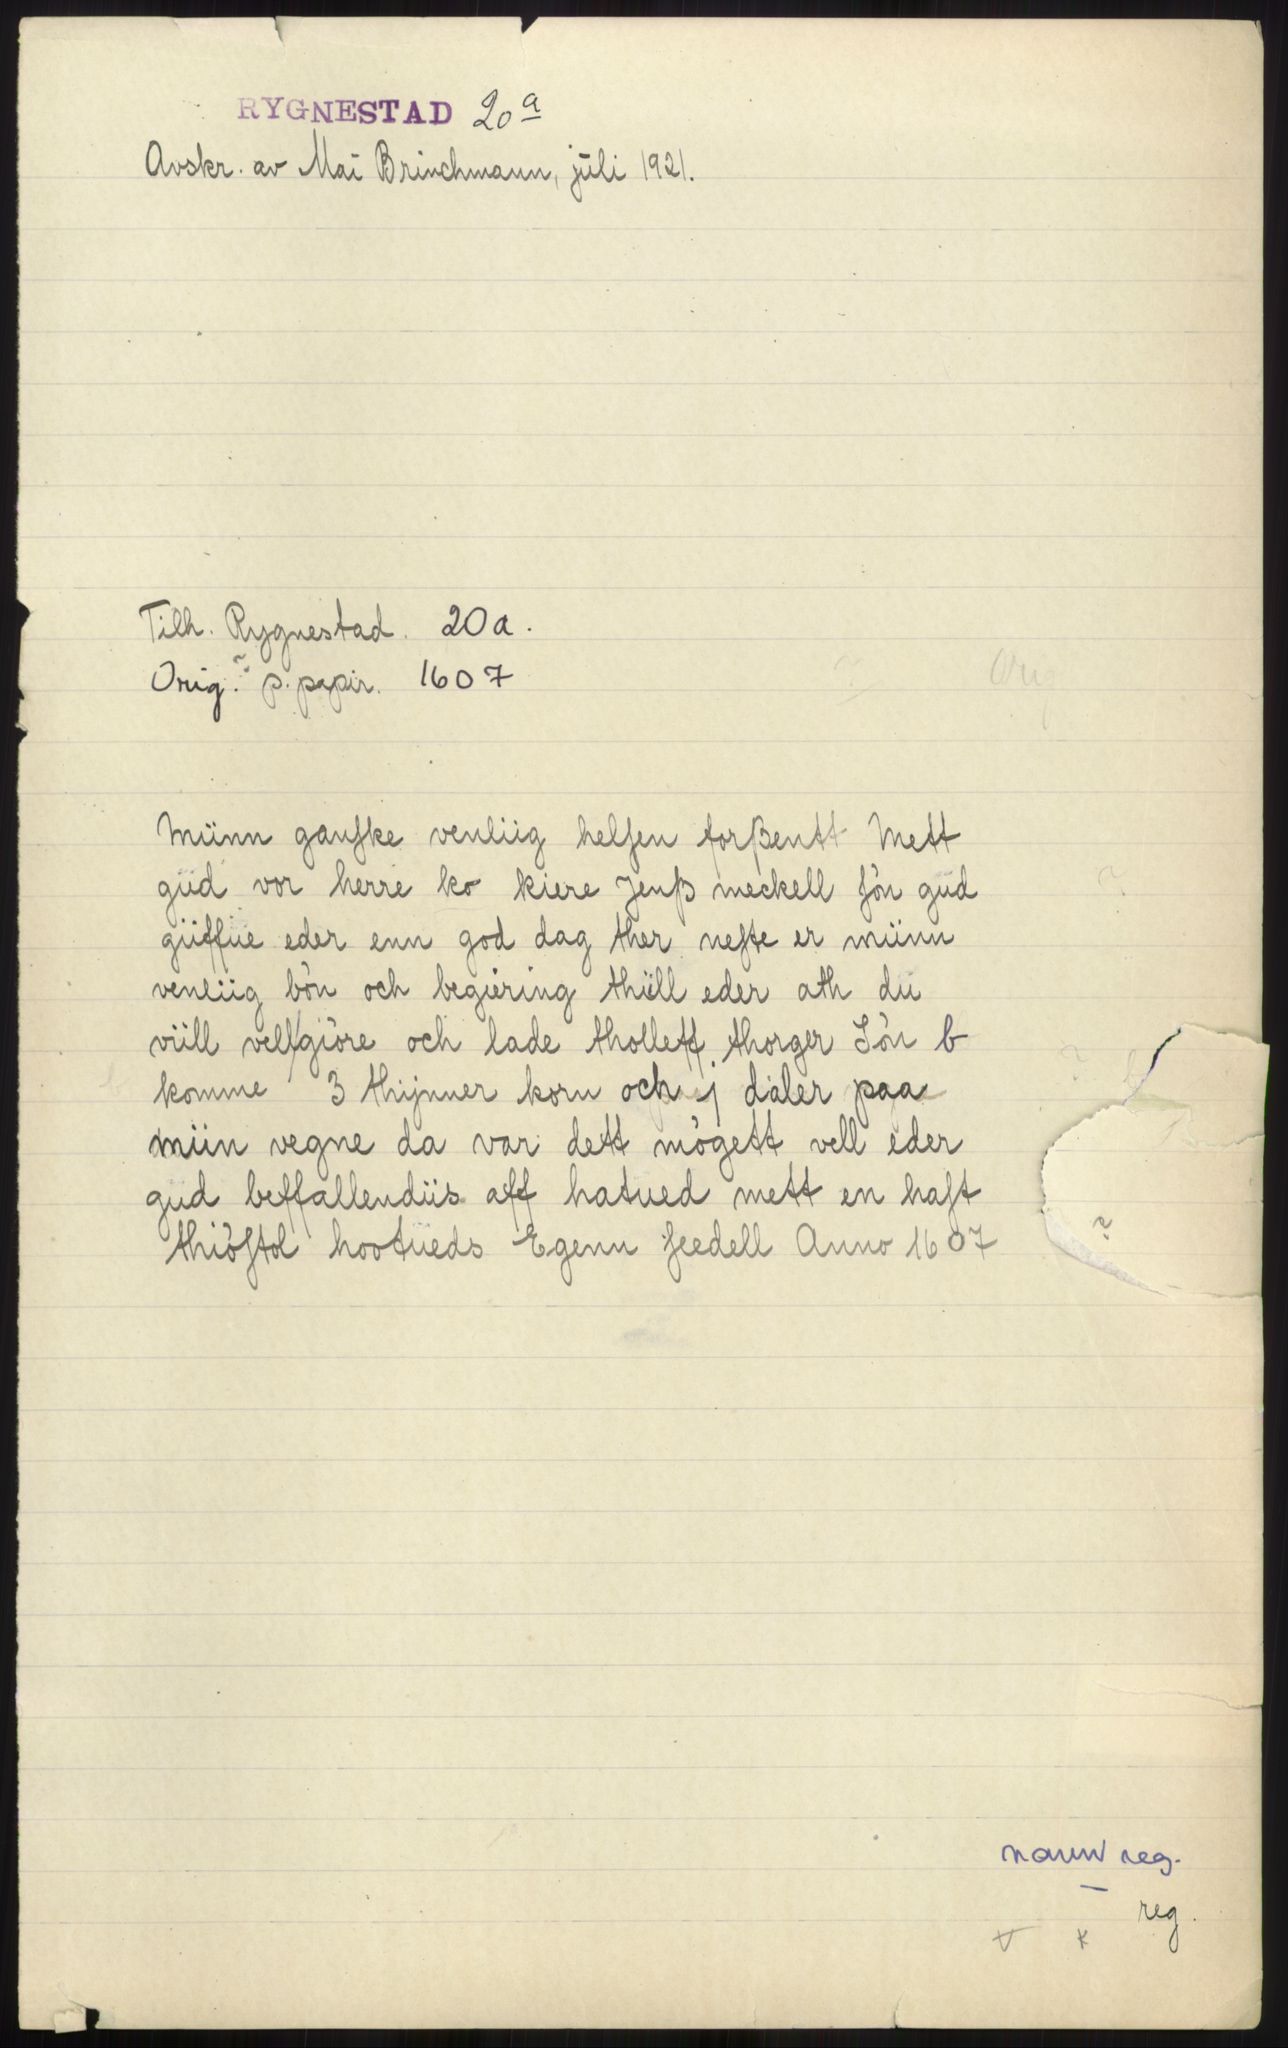 RYGNESTAD 20a
Avskr. av Mai Brinchmann, juli 1921.
Tilh. Rygnestad. 20a.
Orig.? p. papir. 1607
? Orig
Münn ganſke venliig helſen forßentt Mett
güd vor herre ko kiere Jenß meckell ſøn gud ?
güffüe eder enn god dag ther neſte er münn
venliig bøn och begiering thüll eder ath du
viill vellgiöre och lade tholleff thorger Søn b ?
komme 3 thijnner korn och j daler paa
miin vegne da var dett mögett vell eder
gud beffallendiis aff hatued mett en haſt ?
thiöſtol hootüeds Egenn ſeedell Anno 1607
navnreg.
reg.